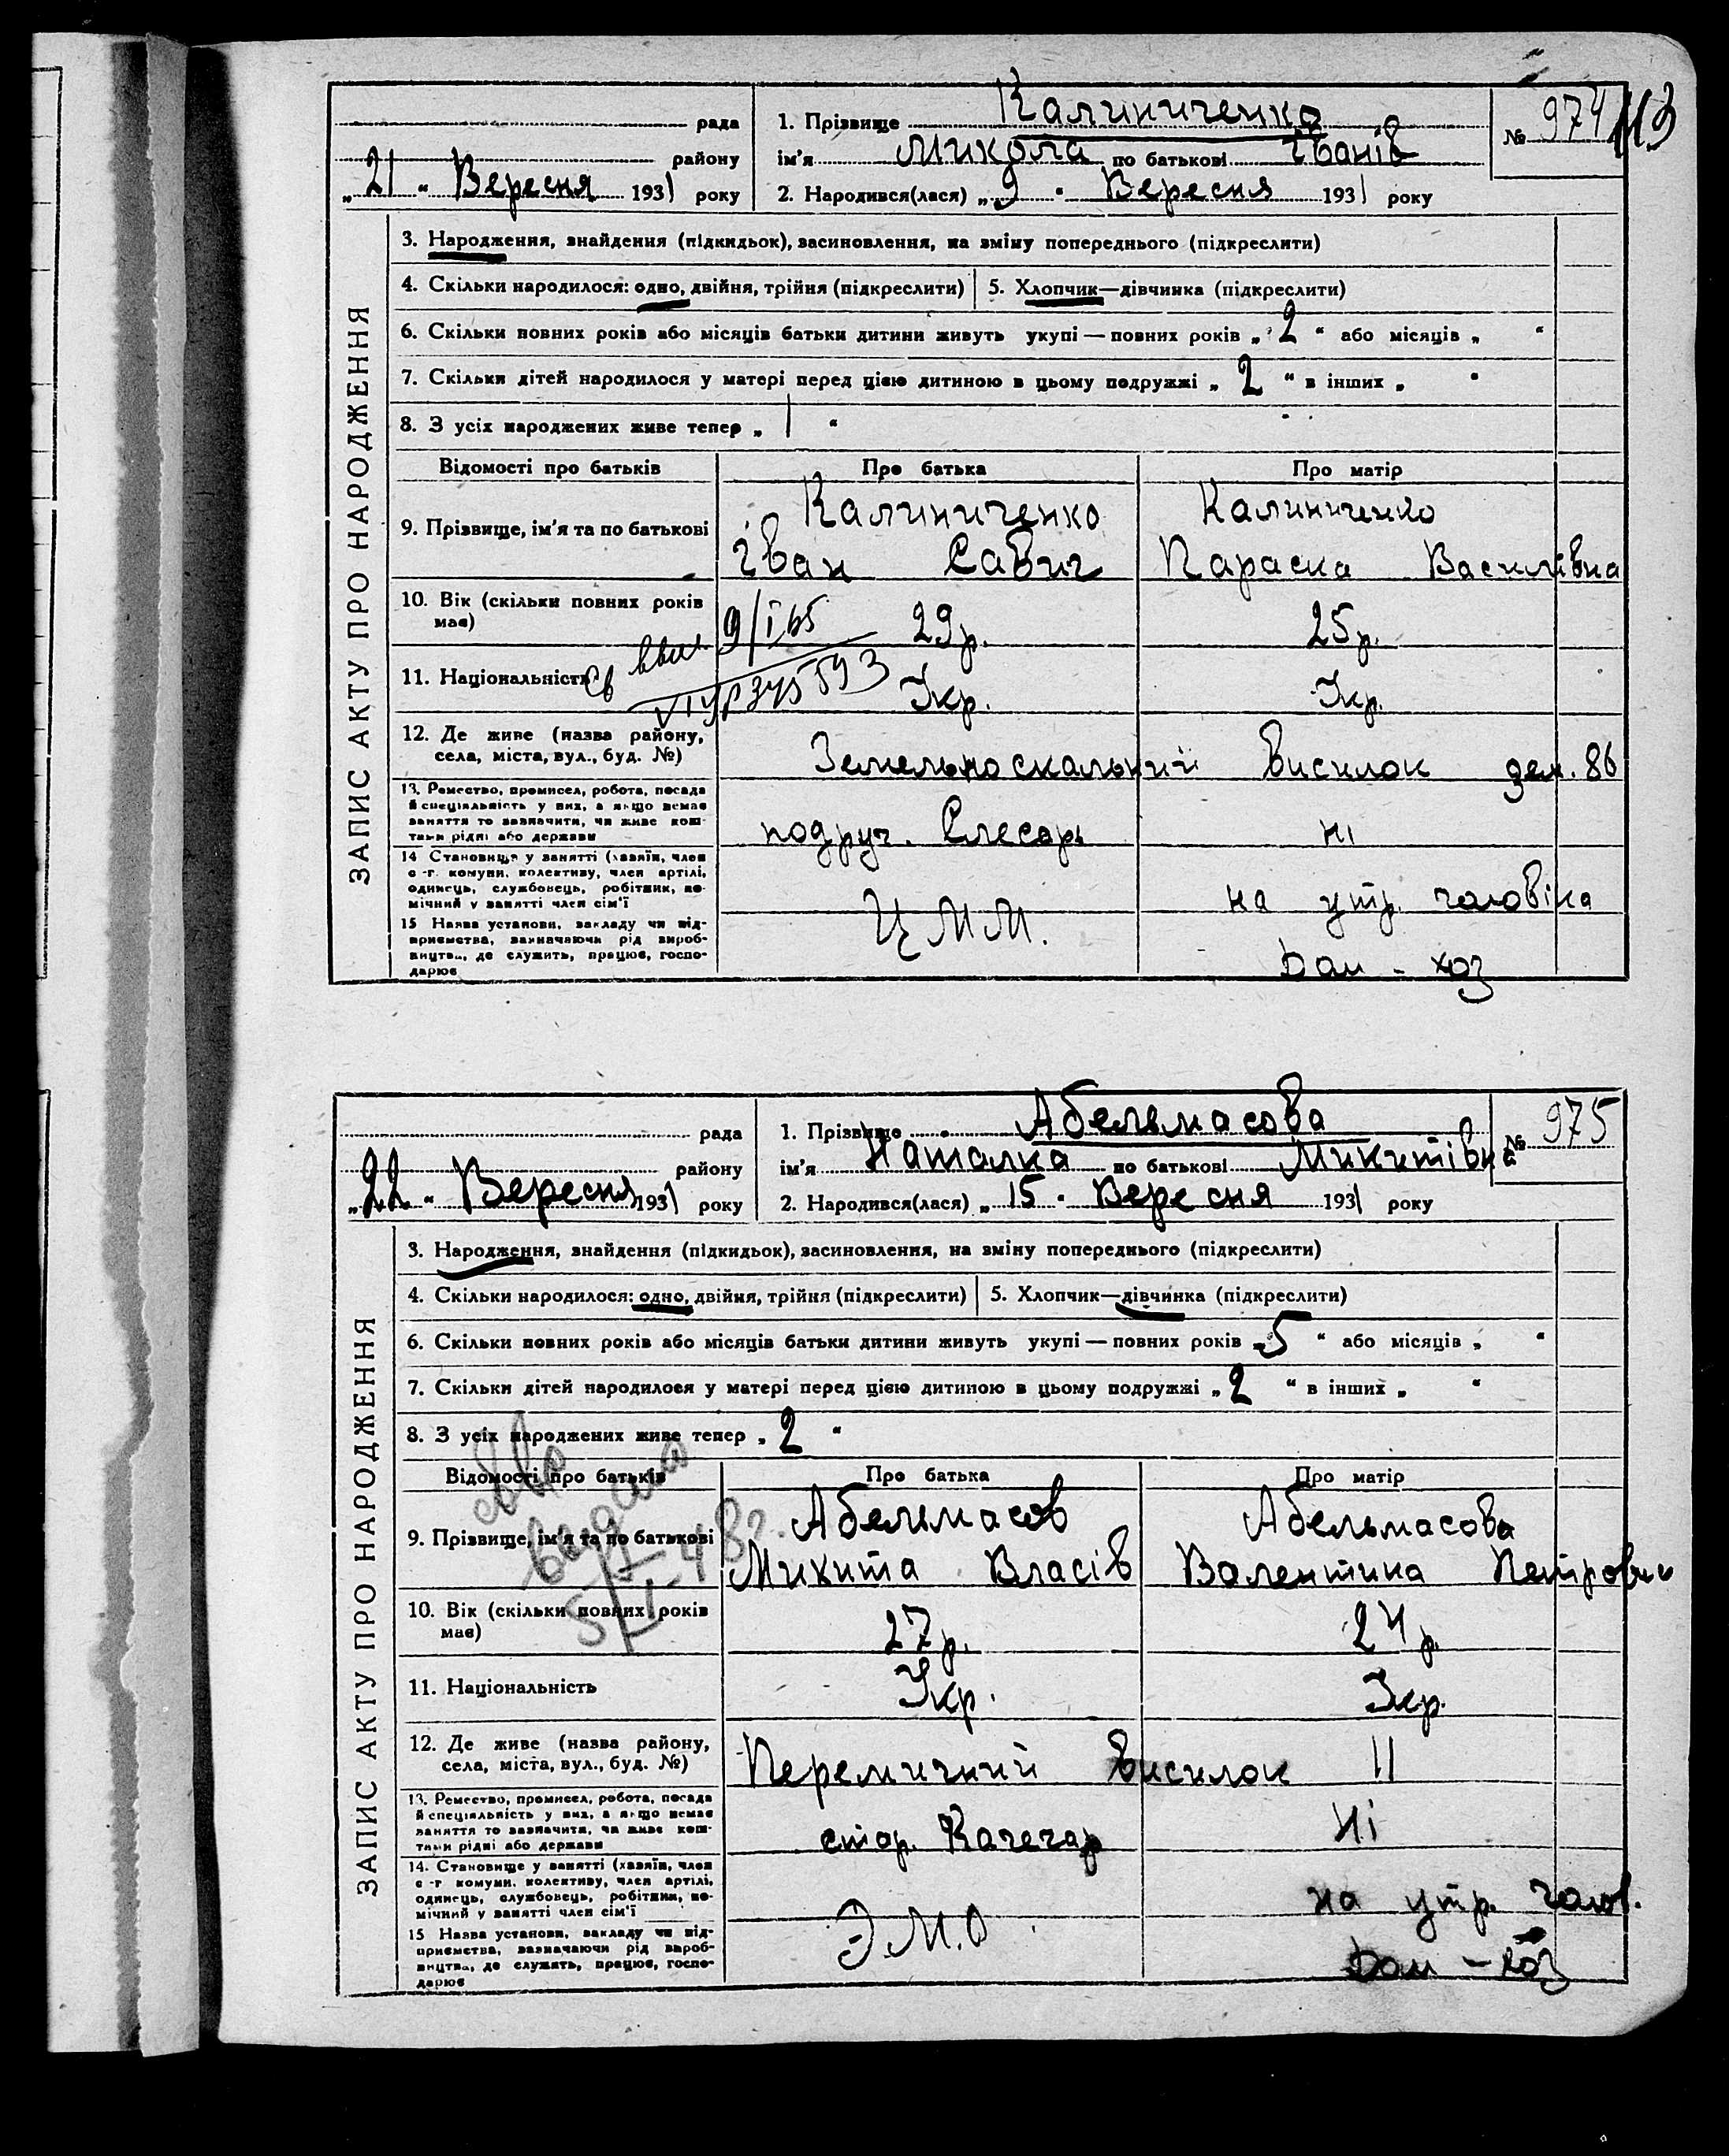 113
рада
1. Прізвище Калиниченко
№ 974
району
ім'я Микола по батькові Іванів
„21“ Вересня 1931 року
2. Народився(лася) „9“ Вересня 1931 року
ЗАПИС АКТУ ПРО НАРОДЖЕННЯ
3. Народження, знайдення (підкидьок), засиновлення, на зміну попереднього (підкреслити)
4. Скільки народилося: одно, двійня, трійня (підкреслити) 5. Хлопчик—дівчинка (підкреслити)
6. Скільки повних років або місяців батьки дитини живуть укупі — повних років „2“ або місяців „ “
7. Скільки дітей народилося у матері перед цією дитиною в цьому подружжі „2“ в інших „ “
8. З усіх народжених живе тепер „1“
Відомості про батьків Про батька Про матір
9. Прізвище, ім'я та по батькові
Калиниченко Калиниченко
Іван Савич Параска Василівна
10. Вік (скільки повних років має) 29р. 25р.
9/I 65
11. Національність Укр. Укр.
12. Де живе (назва району, села, міста, вул., буд. №)
Земельноскальний висилок зем. 86
13. Ремество, промисел, робота, посада
й спеціяльність у них, а якщо немає
заняття то зазначити, чи живе кош-
тами рідні або держави
подруч. Слесарь ні
14 Становище у занятті (хазяїн, член
с-г. комуни, колективу, член артілі,
одинець, службовець, робітник, по-
мічний у занятті член сім'ї
на утр. чоловіка
15 Назва установи, закладу чи під-
приємства, зазначаючи рід вироб-
ництва, де служить, працює, госпо-
дарює
Ц.М.М. Дом-хоз
рада
1. Прізвище Абельмасова
№ 975
району
ім'я Наталка по батькові Микитівна
„22“ Вересня 1931 року
2. Народився(лася) „15“ Вересня 1931 року
ЗАПИС АКТУ ПРО НАРОДЖЕННЯ
3. Народження, знайдення (підкидьок), засиновлення, на зміну попереднього (підкреслити)
4. Скільки народилося: одно, двійня, трійня (підкреслити) 5. Хлопчик—дівчинка (підкреслити)
6. Скільки повних років або місяців батьки дитини живуть укупі — повних років „5“ або місяців „ “
7. Скільки дітей народилося у матері перед цією дитиною в цьому подружжі „2“ в інших „ “
8. З усіх народжених живе тепер „2“
Відомості про батьків Про батька Про матір
9. Прізвище, ім'я та по батькові
Абельмасов Абельмасова
Микита Власів Валентина Петровн
10. Вік (скільки повних років має) 27р. 24р.
11. Національність Укр. Укр.
12. Де живе (назва району, села, міста, вул., буд. №)
Перемичний висилок 11
13. Ремество, промисел, робота, посада
й спеціяльність у них, а якщо немає
заняття то зазначити, чи живе кош-
тами рідні або держави
стар. Качегар Ні
14. Становище у занятті (хазяїн, член
с-г комуни, колективу, член артілі,
одинець, службовець, робітник, по-
мічний у занятті член сім'ї
на утр. чолов.
15 Назва установи, закладу чи під-
приємства, зазначаючи рід вироб-
ництва, де служить, працює, госпо-
дарює
Э.М.О Дом-хоз